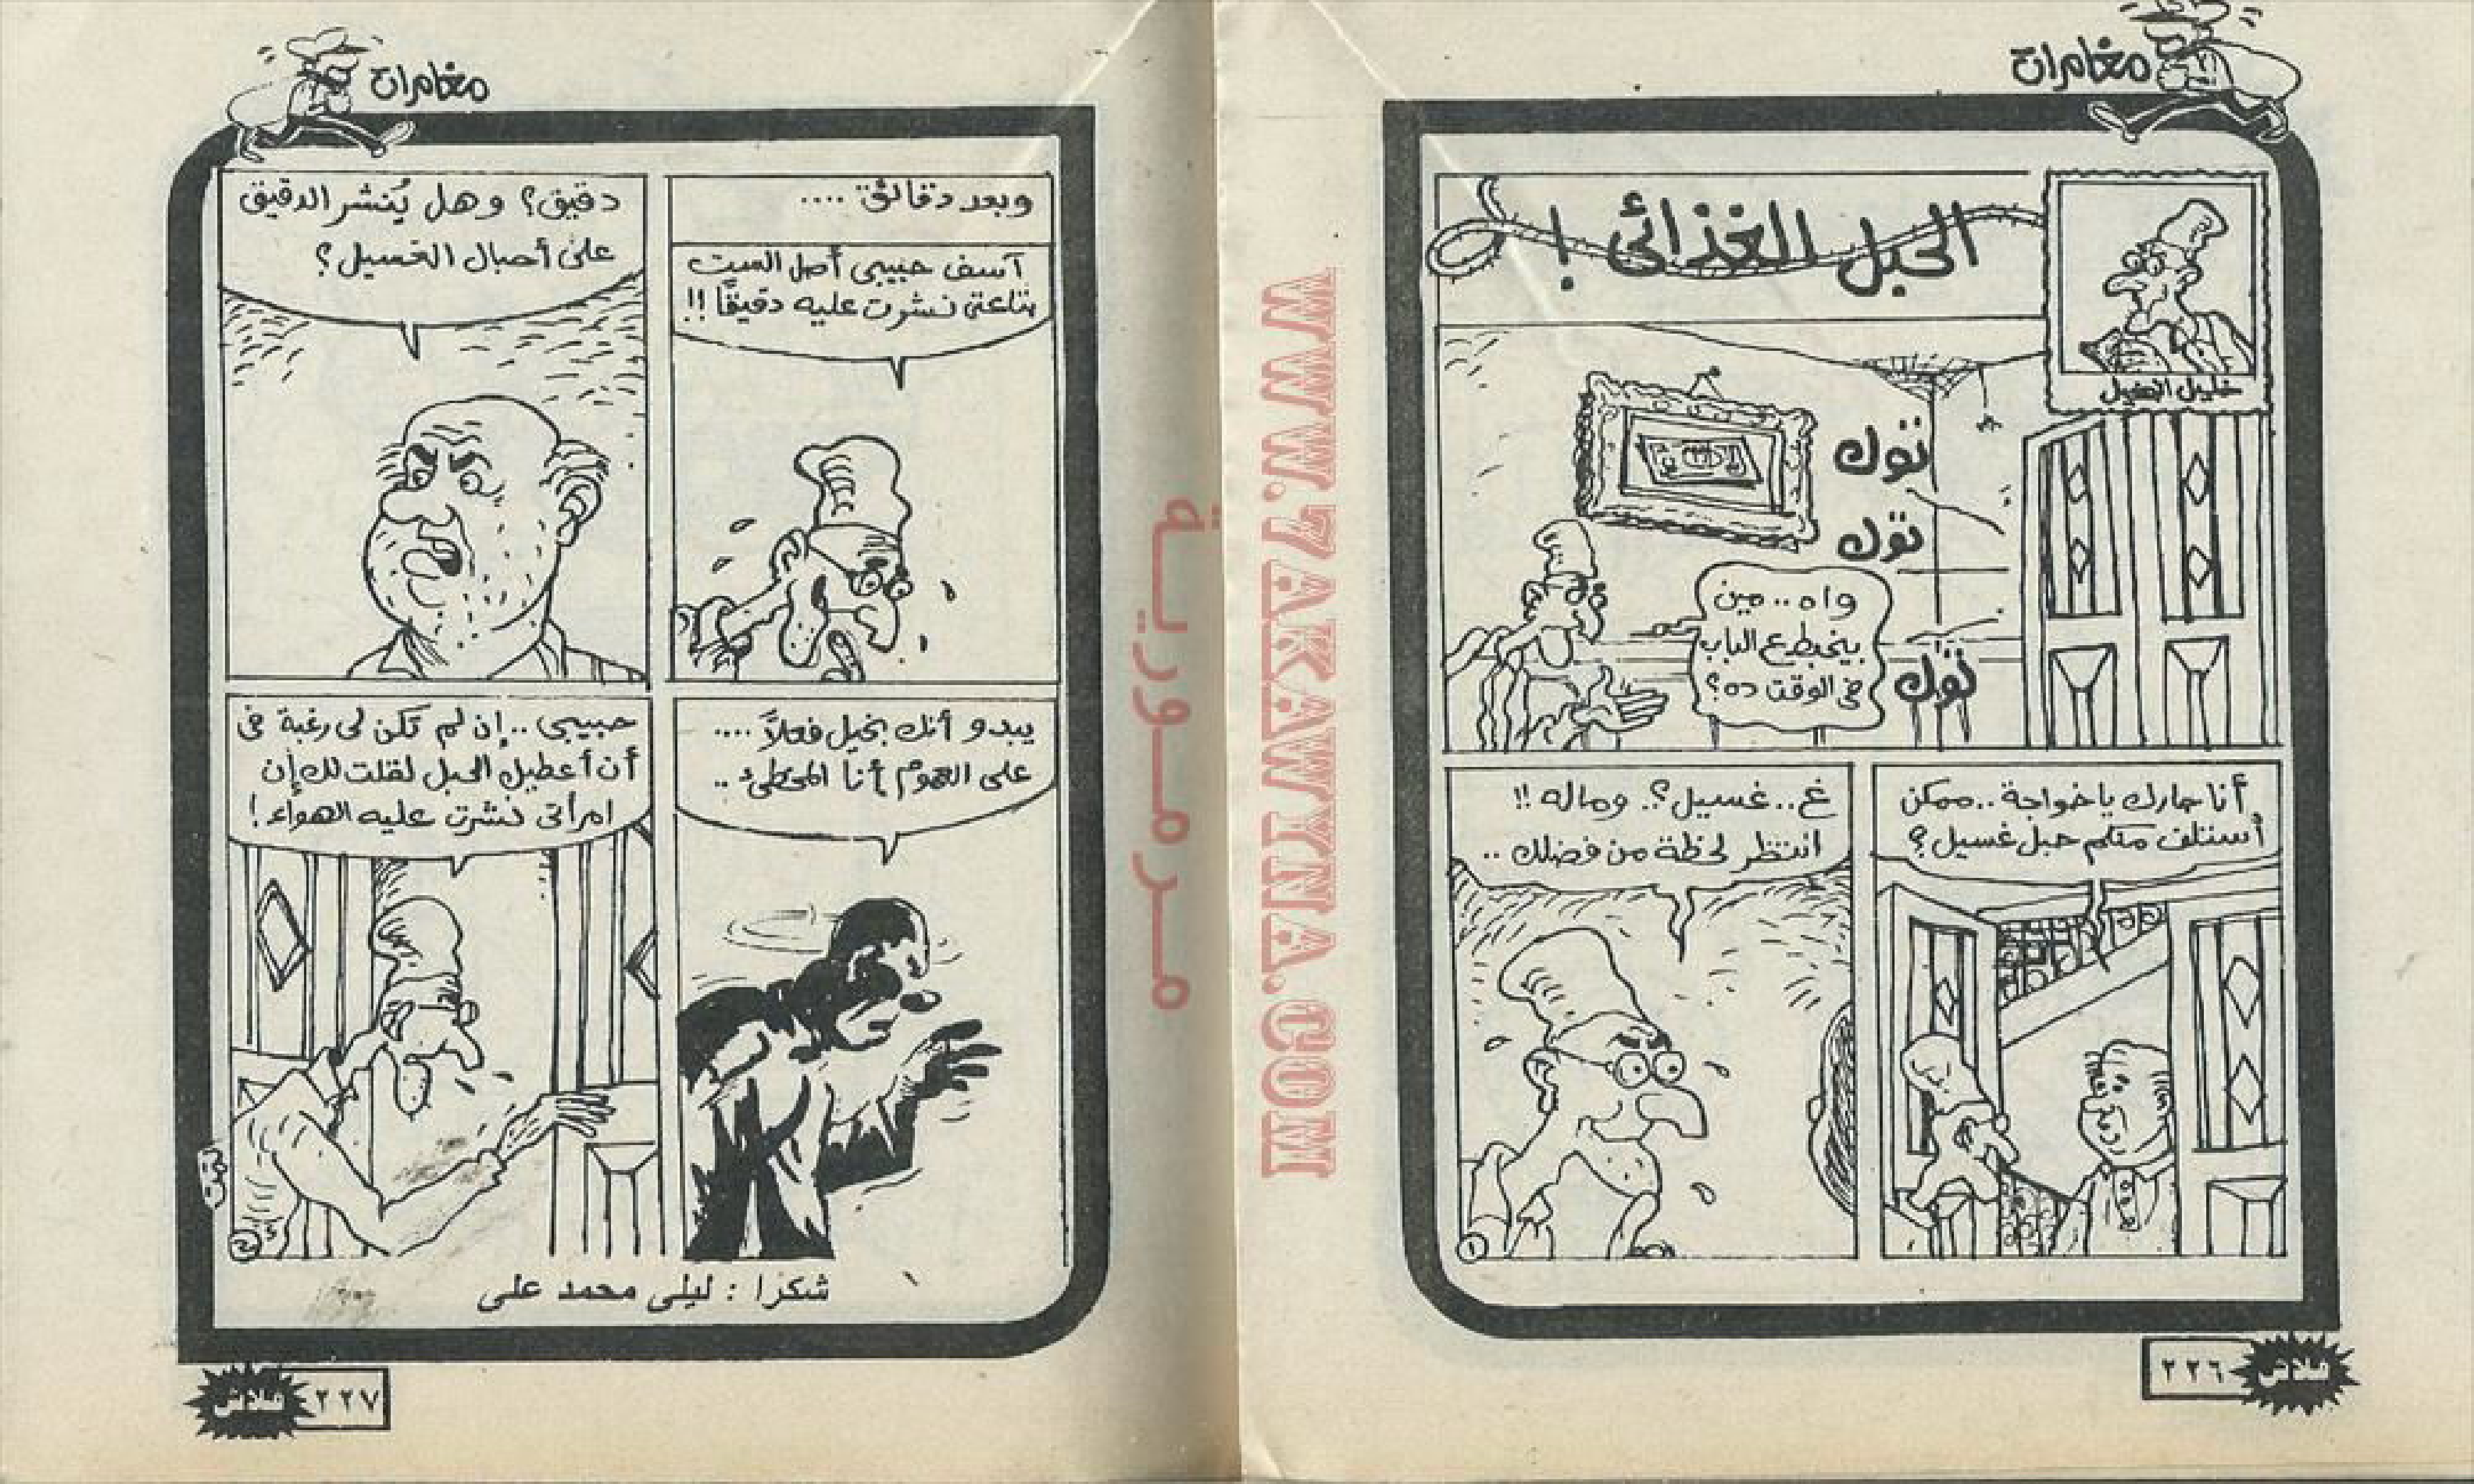 مغامرات
الحبل الغذائى !
خليل البخيل
توك
توك
توك
واه .. مين
بيخبط ع الباب
فى الوقت ده؟
أنا جارك يا خواجة .. ممكن
أستلف منكم حبل غسيل؟
غ .. غسيل؟. وماله !!
انتظر لحظة من فضلك ..
١
٢٢٦
فلاش
مغامرات
وبعد دقائق ....
آسف حبيبى أصل الست
بتاعتى نشرت عليه دقيقًا !!
دقيق؟ وهل يُنشر الدقيق
على أحبال الغسيل؟
يبدو أنك بخيل فعلاً ....
على العموم أنا المخطئ ..
حبيبى .. إن لم تكن لى رغبة فى
أن أعطيك الحبل لقلت لك إن
امرأتى نشرت عليه الهواء !
تمت
شكرا : ليلى محمد على
٢٢٧
فلاش
مرمورية
WWW.7AKAWINA.COM